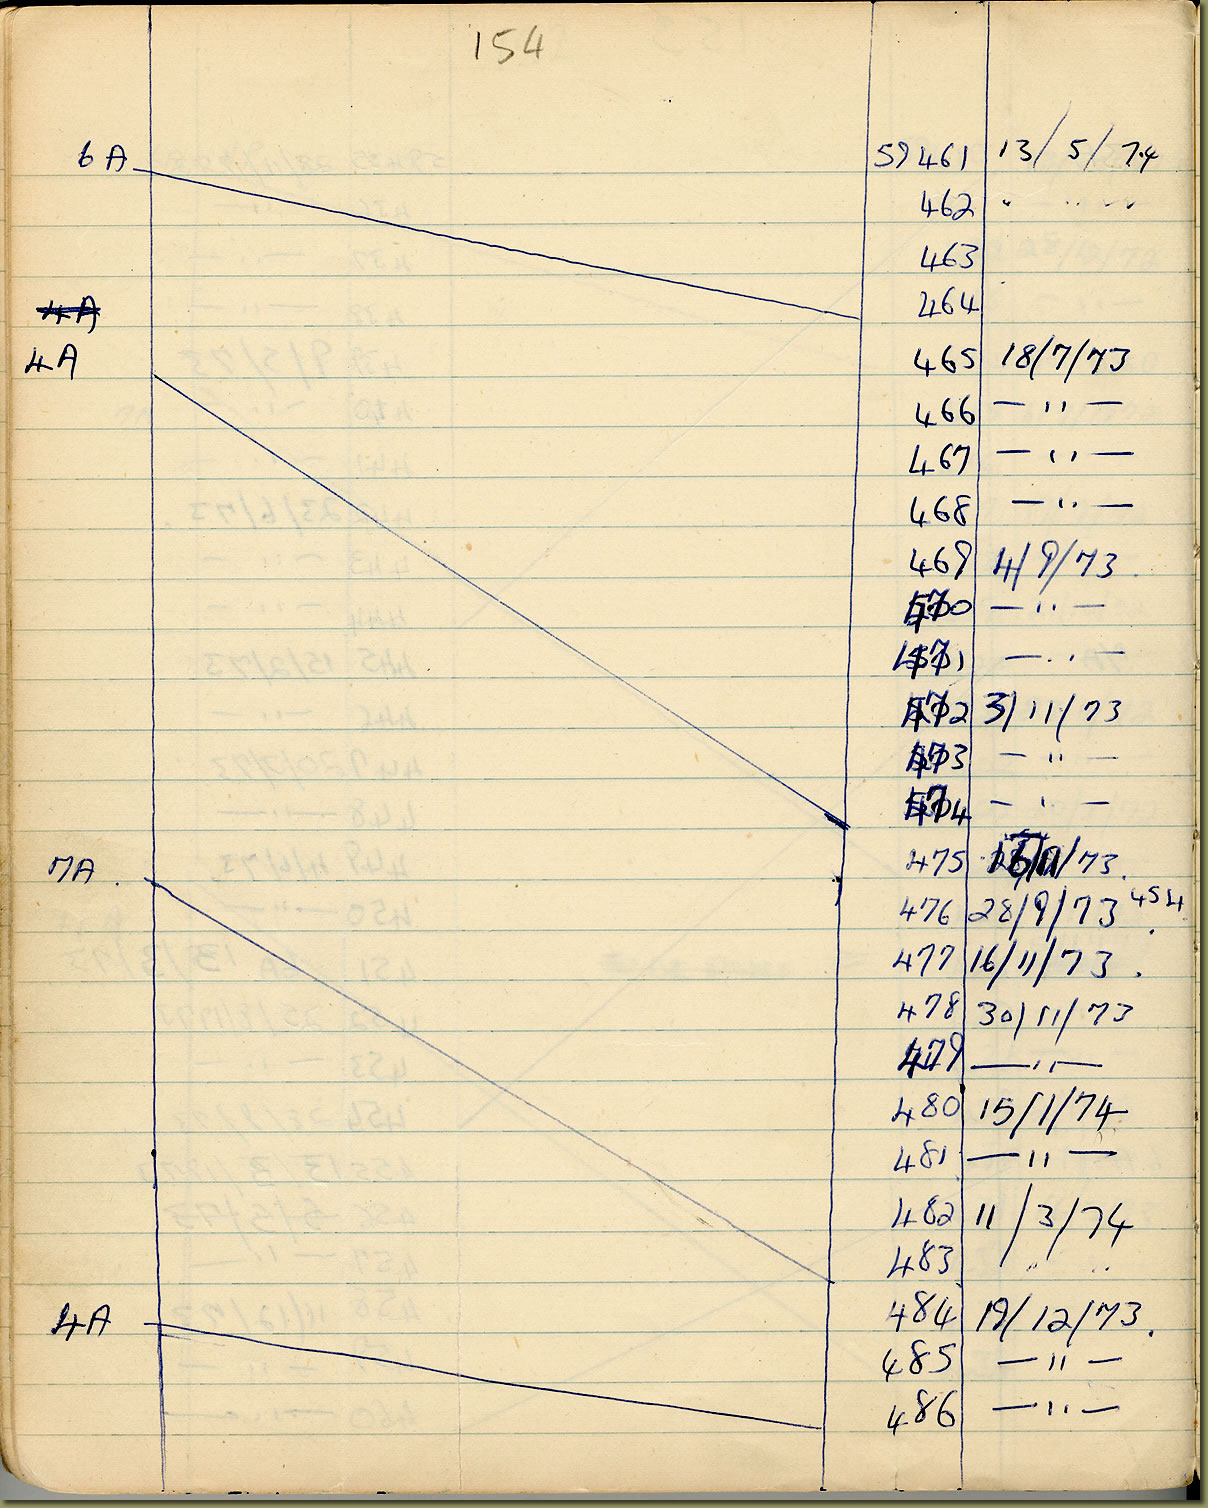 154
6A 59461 13/5/74
462 " " "
463
4A 464
4A 465 18/7/73
466 — " —
467 — " —
468 — " —
469 4/9/73
470 — " —
471 — " —
472 3/11/73
473 — " —
474 — " —
7A. 475 /73.
476 28/9/73 454.
477 16/11/73.
478 30/11/73
479 — " —
480 15/1/74
481 — " —
482 11/3/74
483 " "
4A 484 19/12/73.
485 — " —
486 — " —